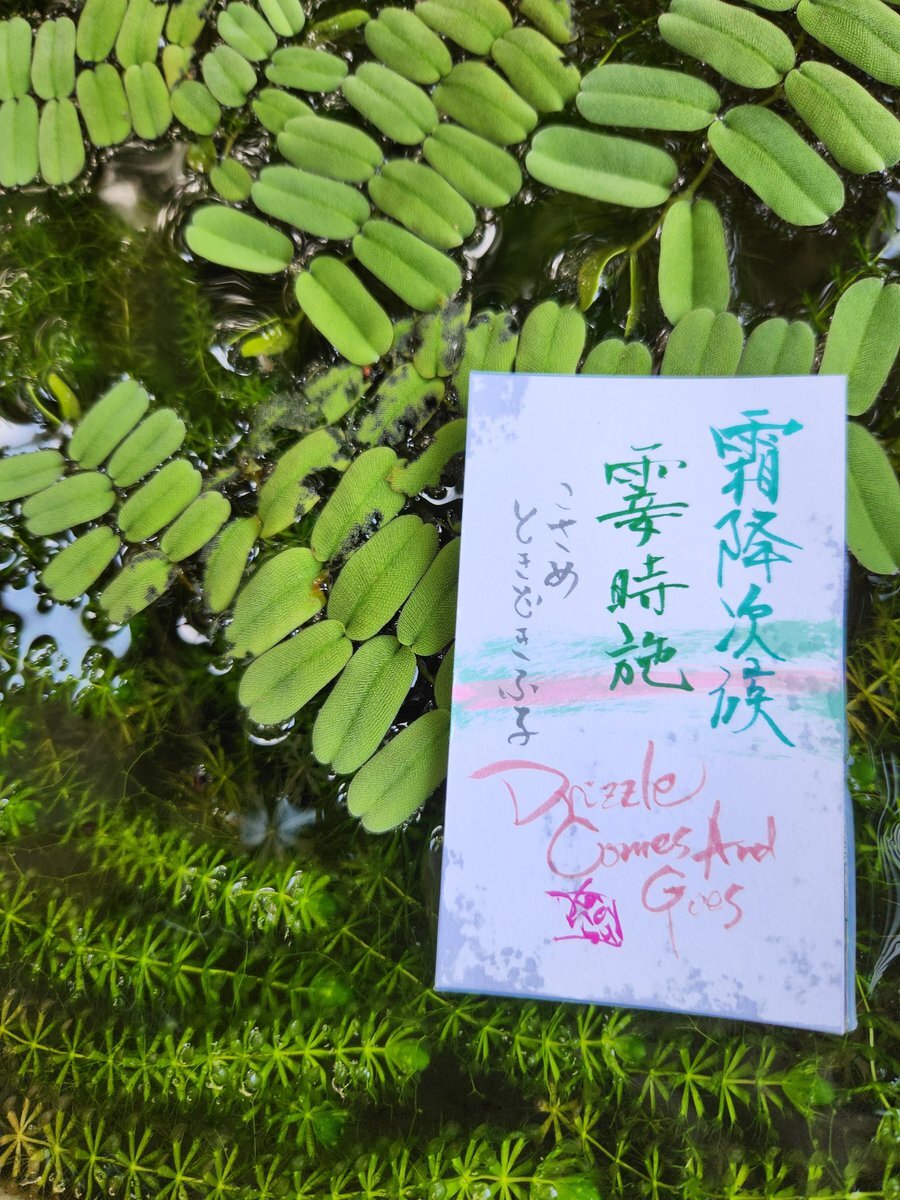 霜降次候
霎時施
こさめ
ときどきふる
Drizzle
Comes And
Goes